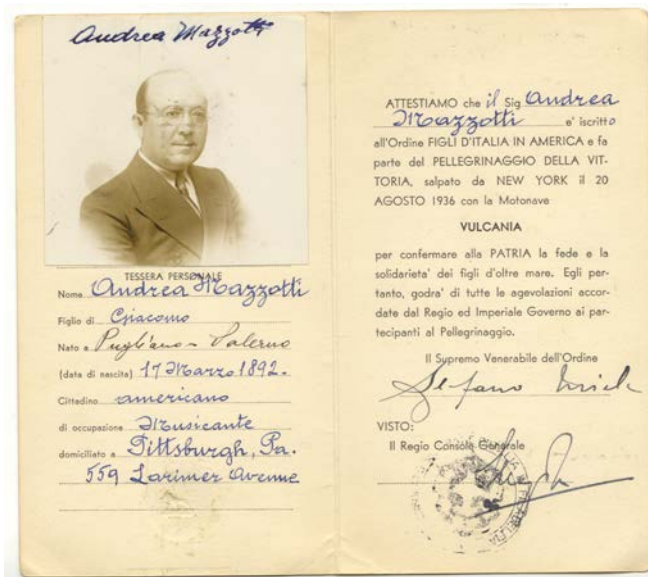 Andrea Mazzotti
TESSERA PERSONALE
Nome Andrea Mazzotti
Figlio di Giacomo
Nato a Pugliano - Salerno
(data di nascita) 17 Marzo 1892.
Cittadino americano
di occupazione Musicante
domiciliato a Pittsburgh, Pa.
559 Larimer Avenue
ATTESTIAMO che il Sig Andrea
Mazzotti e' iscritto
all'Ordine FIGLI D'ITALIA IN AMERICA e fa
parte del PELLEGRINAGGIO DELLA VIT-
TORIA, salpato da NEW YORK il 20
AGOSTO 1936 con la Motonave
VULCANIA
per confermare alla PATRIA la fede e la
solidarieta' dei figli d'oltre mare. Egli per-
tanto, godra' di tutte le agevolazioni accor-
date dal Regio ed Imperiale Governo ai par-
tecipanti al Pellegrinaggio.
Il Supremo Venerabile dell'Ordine
Stefano Miele
VISTO:
Il Regio Console Generale